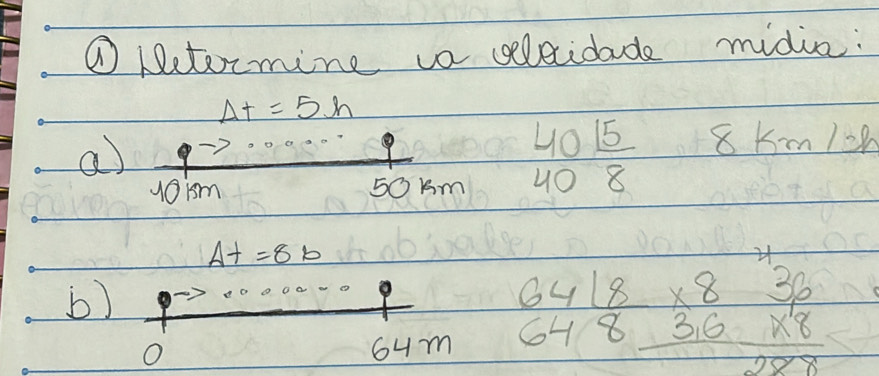 ① Determine a velocidade midia:
Δt = 5h
a) 10 km 50 km 40 5 40 8 8 Km/h
Δt = 8 s
b) 0 64 m 64 8 64 8 x8 3,6 4 36 x8 288